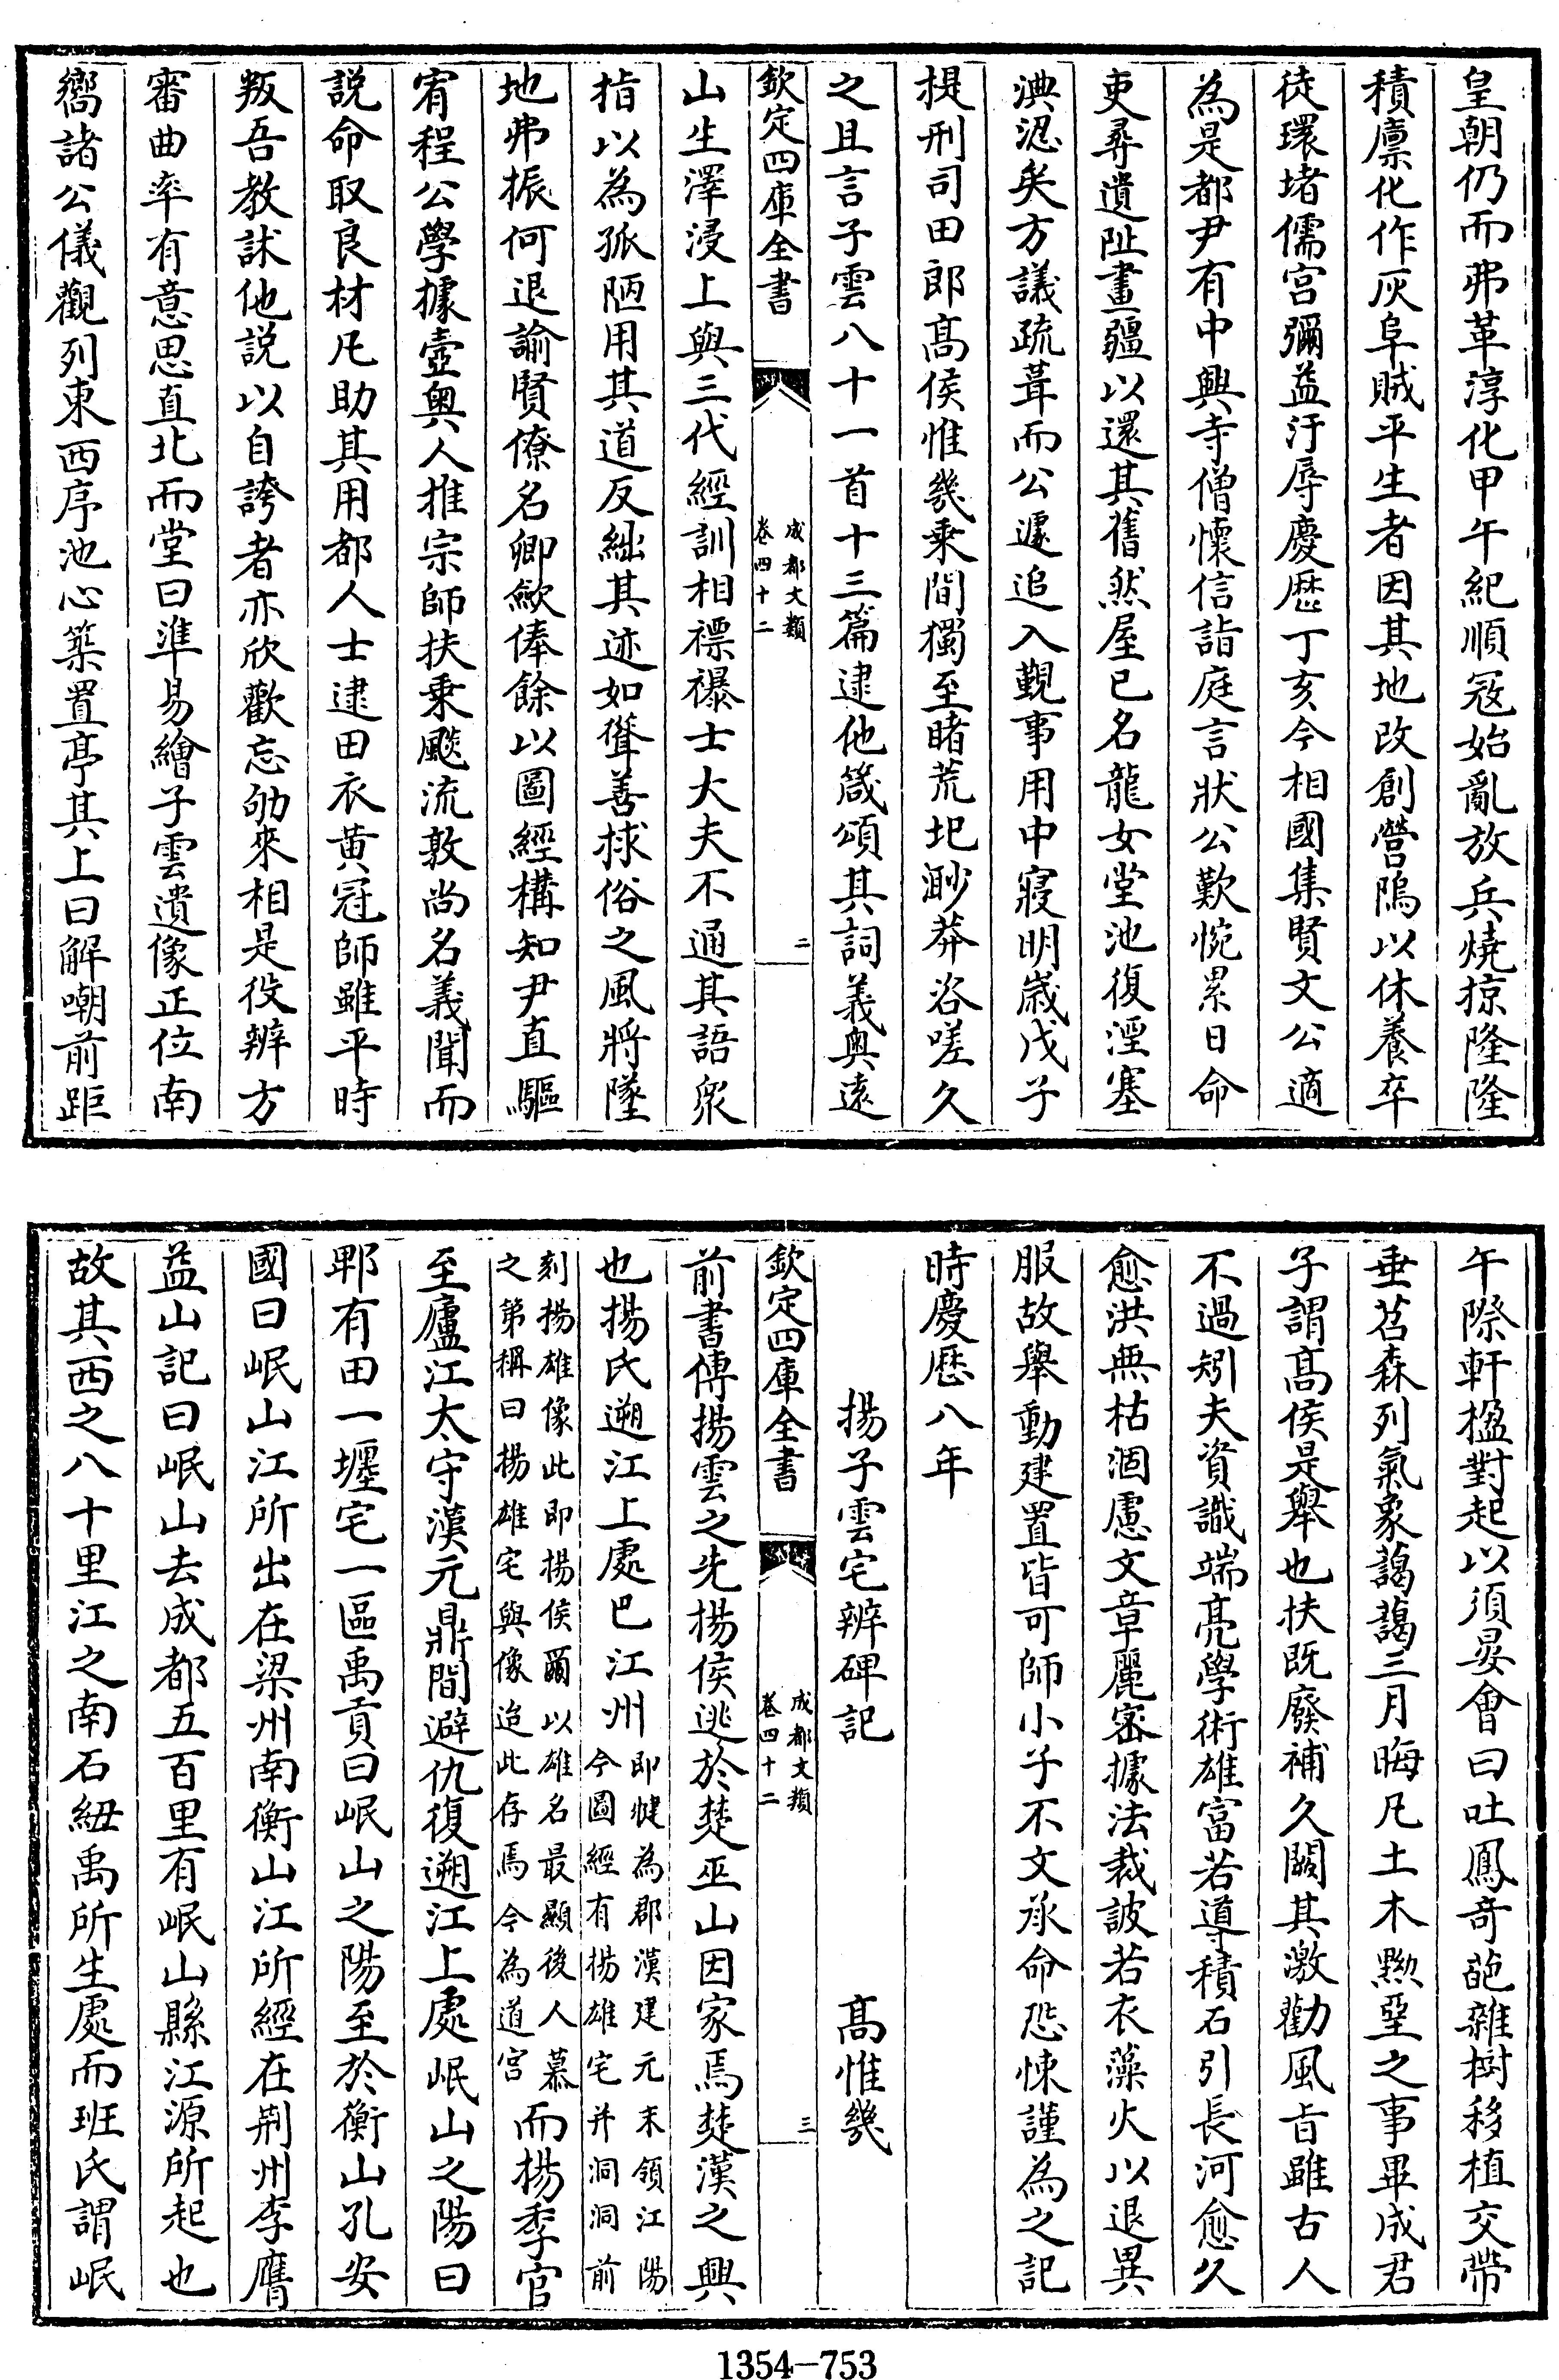 皇朝仍而弗革淳化甲午紀順寇始亂放兵燒掠隆隆
積廪化作灰阜賊平生者因其地改創營隖以休養卒
徒環堵儒宫彌益汙辱慶厯丁亥今相國集賢文公適
為是都尹有中興寺僧懷信詣庭言狀公歎惋累日命
吏尋遺阯畫疆以還其舊然屋已名龍女堂池復湮塞
淟涊矣方議疏葺而公遽追入覲事用中寢明歲戊子
提刑司田郎髙侯惟幾乘間獨至睹荒圯渺莽洛嗟久
之且言子雲八十一首十三篇逮他箴頌其詞義奥遠
欽定四庫全書
成都文類
卷四十二
二
山生澤浸上與三代經訓相標襮士大夫不通其語衆
指以為孤陋用其道反絀其迹如聳善捄俗之風將墜
地弗振何退諭賢僚名卿歛俸餘以圖經構知尹直驅
宥程公學據壼奥人推宗師扶乗颷流敦尚名義聞而
説命取良材凡助其用都人士逮田衣黄冠師雖平時
叛吾教訹他説以自誇者亦欣歡忘劬來相是役辨方
審曲率有意思直北而堂曰準易繪子雲遺像正位南
嚮諸公儀觀列東西序池心築置亭其上曰解嘲前距
午際軒楹對起以須晏會曰吐鳳奇葩雜樹移植交帶
垂苕森列氣象藹藹三月晦凡土木黝堊之事畢成君
子謂髙侯是舉也扶既廢補久闕其激勸風旨雖古人
不過矧夫資識端亮學術雄富若導積石引長河愈久
愈洪無枯涸慮文章麗密據法裁詖若衣藻火以退異
服故舉動建置皆可師小子不文承命恐悚謹為之記
時慶厯八年
揚子雲宅辨碑記 髙惟幾
欽定四庫全書
成都文類
卷四十二
三
前書傳揚雲之先揚侯逃於楚巫山因家焉楚漢之興
也揚氏遡江上處巴江州即犍為郡漢建元末領江陽今圖經有揚雄宅并洞洞前
刻揚雄像此即揚侯爾以雄名最顯後人慕之第稱曰揚雄宅與像迨此存焉今為道宫而揚季官
至廬江太守漢元鼎間避仇復遡江上處岷山之陽曰
郫有田一㕓宅一區禹貢曰岷山之陽至於衡山孔安
國曰岷山江所出在梁州南衡山江所經在荆州李膺
益山記曰岷山去成都五百里有岷山縣江源所起也
故其西之八十里江之南石紐禹所生處而班氏謂岷
1354—753